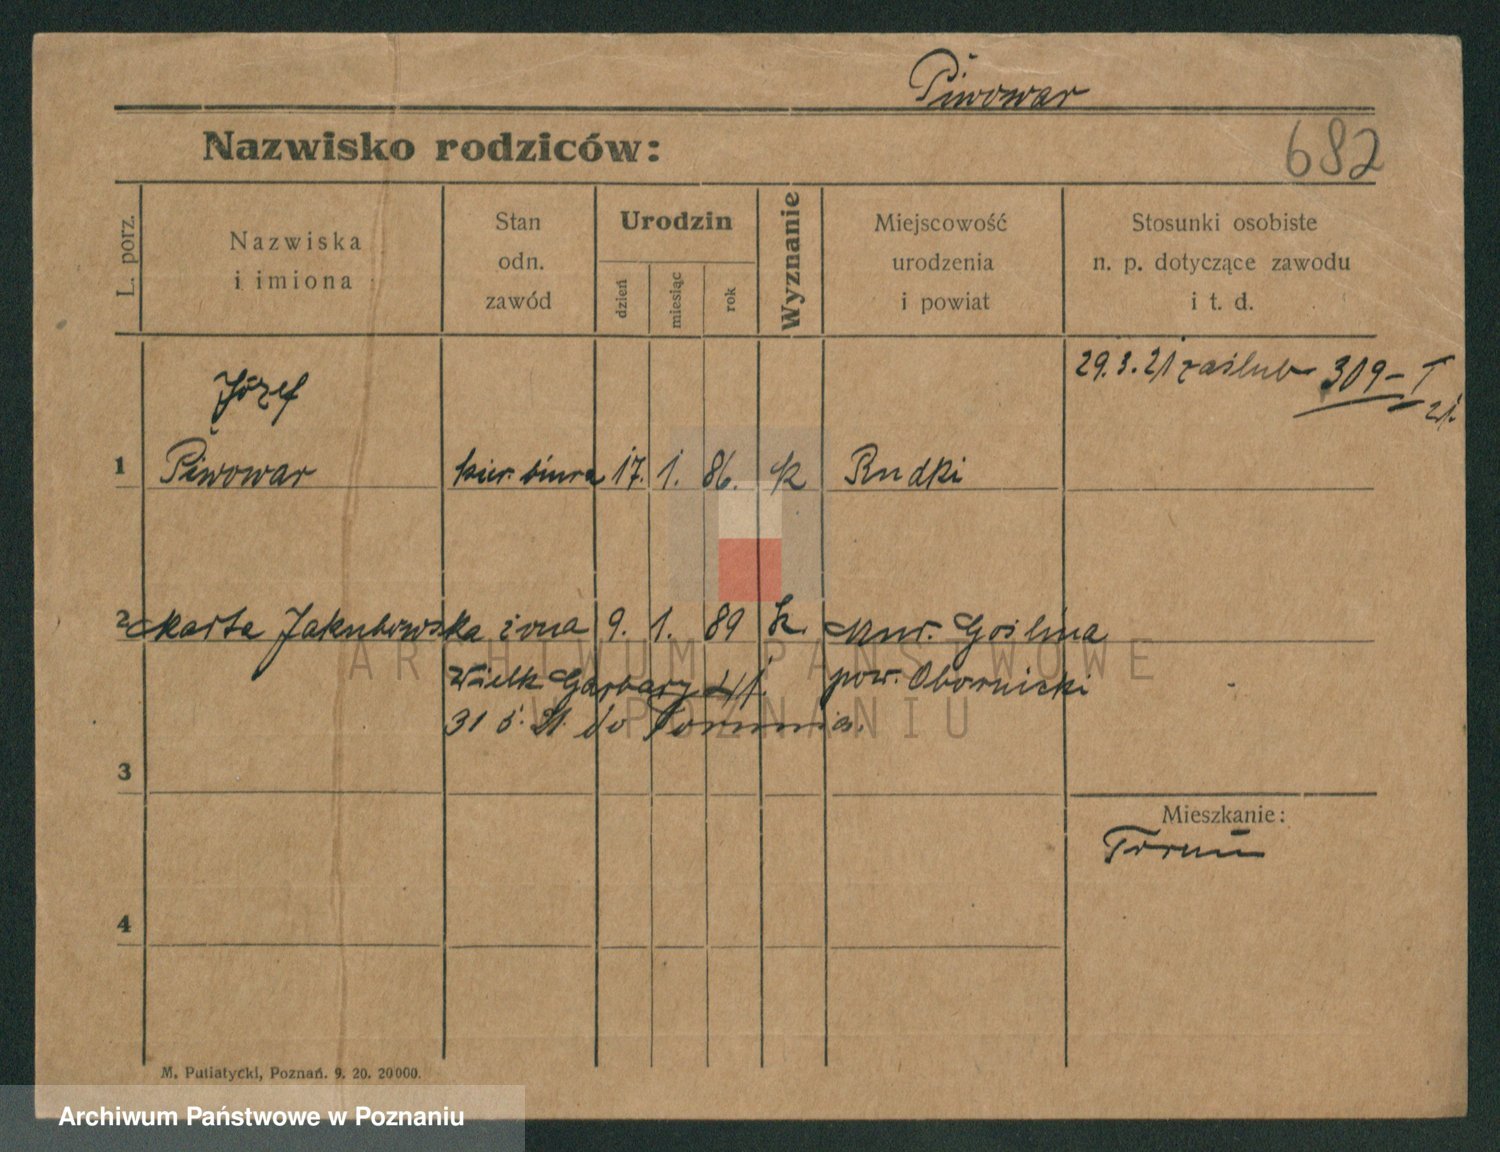 Piwowar
Nazwisko rodziców:
682
L. porz.
Nazwiska
i imiona
Stan
odn.
zawód
Urodzin
dzień
miesiąc
rok
Wyznanie
Miejscowość
urodzenia
i powiat
Stosunki osobiste
n. p. dotyczące zawodu
i t. d.
29.3.21 zaślub 309-I
21.
Józef
1 Piwowar kier. biura 17. 1. 86. k Rudki
2 Marta Jakubowska żona 9. 1. 89 k. Mur. Goślina
Wielk Garbary 41. pow. Obornicki
31 5. 21. do Torunia.
3
Mieszkanie:
Toruń
4
M. Putiatycki, Poznań. 9. 20. 20000.
ARCHIWUM PAŃSTWOWE
W POZNANIU
Archiwum Państwowe w Poznaniu